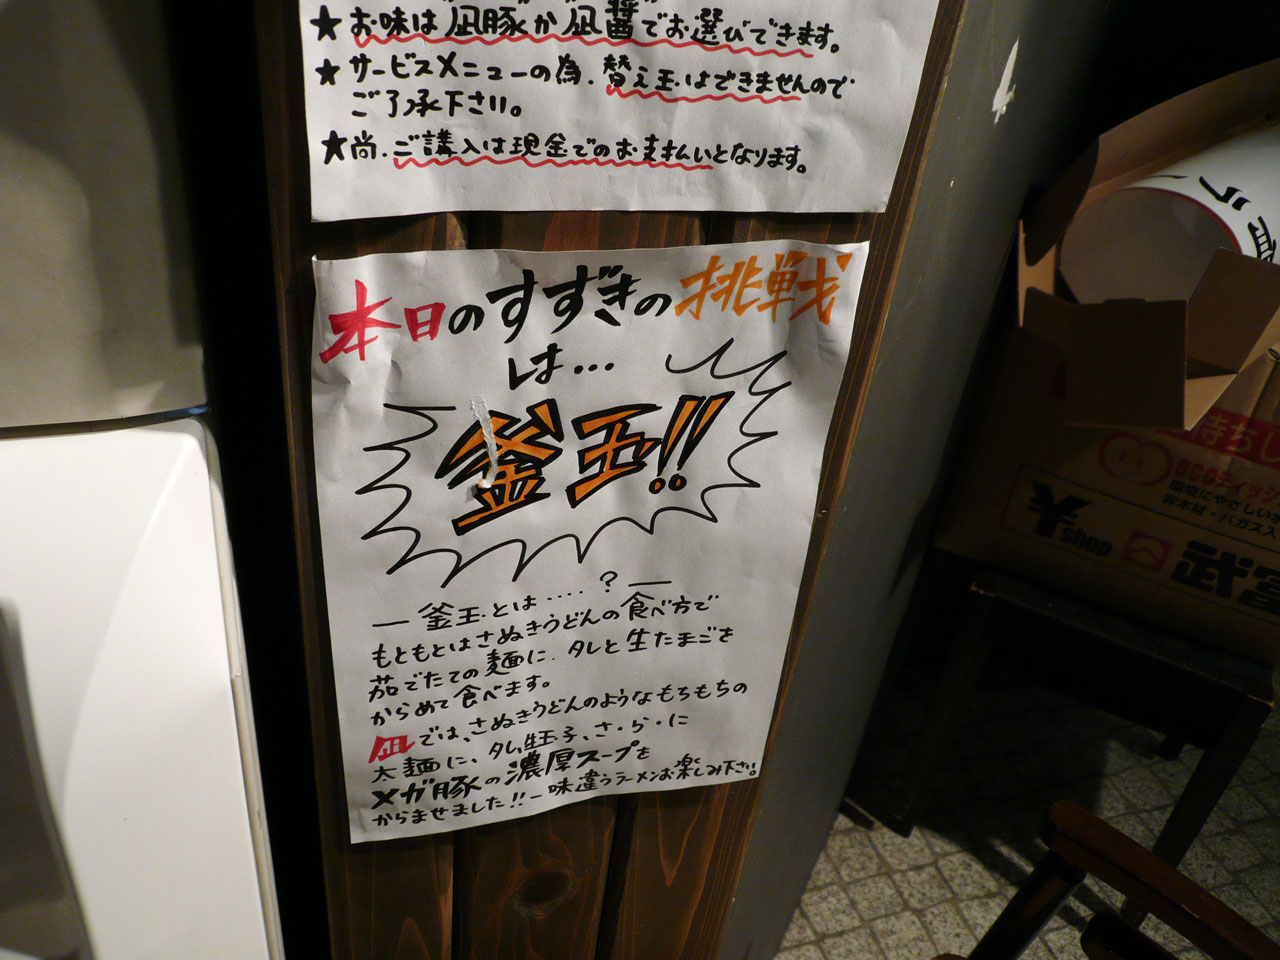 ★お味は"凪豚"か"凪醤"でお選びできます。
★サービスメニューの為、替え玉はできませんので
ご了承下さい。
★尚、ご講入は現金でのお支払いとなります。
本日のすずきの挑戦
は…
釜玉!!
―釜玉とは.....?―
もともとはさぬきうどんの食べ方で
茹でたての麺に、タレと生たまごを
からめて食べます。
凪では、さぬきうどんのようなもちもちの
太麺に、タレ、生玉子、さ・ら・に
メガ豚の濃厚スープを
からませました!!一味違うラーメンお楽しみ下さい。
ecoティッシ
環境にやさしい
非木材・バガス
¥shop
武富